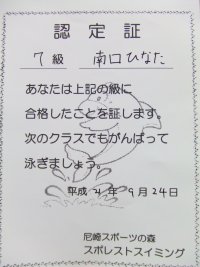 認定証
7級 南口ひなた
あなたは上記の級に
合格したことを証します。
次のクラスでもがんばって
泳ぎましょう。
平成21年9月24日
尼崎スポーツの森
スポレストスイミング